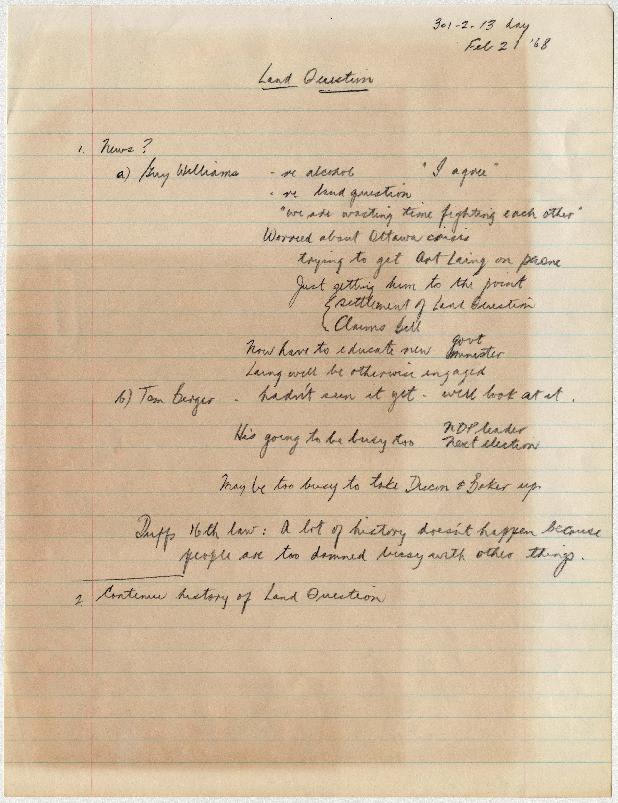 301-2-13 day
Feb 21 '68
Land Question
1. News?
a) Guy Williams - re alcohol "I agree"
- re land question
"we are wasting time fighting each other"
Worried about Ottawa crisis
trying to get Art Laing on phone
Just getting him to the point
{ settlement of Land Question
{ Claims bill
Now have to educate new govt
minister
Laing will be otherwise engaged
b) Tom Berger - hadn't seen it yet - we'll look at it.
He's going to be busy too NDP leader
next election
May be too busy to take Dixon & Baker up
Duff's 16th law: A lot of history doesn't happen because
people are too damned busy with other things.
2. Continue history of Land Question